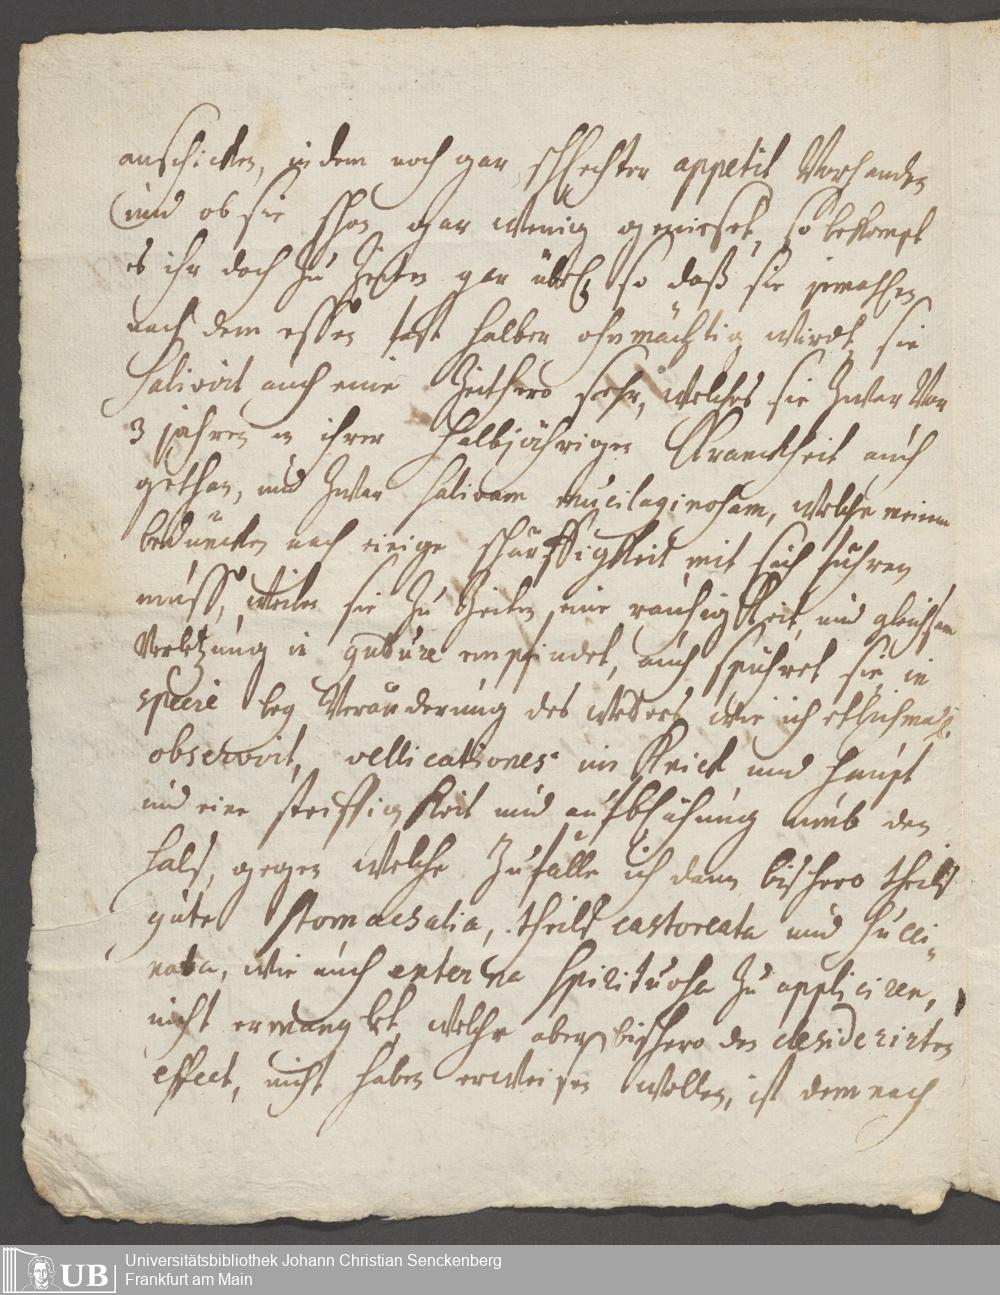 anschicken, in dem noch gar schlechter appetit Vorhanden
und ob sie schon gar wenig genieset, so bekompt
es ihr doch zu Zeiten gar übel, so daß sie
nach dem essen fast halber ohnmächtig wirdt, sie
salivirt auch eine Zeithero sehr, welches sie zwar Vor
3 jahren in ihrer halbjährigen Kranckheit auch
gethan, und zwar salivam mucilaginosam, welche meinem
bedüncken nach einige schärffigkeit mit sich führen
muss, weilen sie zu Zeiten eine rauhigkeit, und gleichsam
Verletzung in guture empfindet, auch spühret sie in
specie bey Veränderung des wetters wie ich etlichmahl
observirt, vellicationes im Knick und haupt
und eine steiffigkeit und aufblähung umb den
hals, gegen welche Zufälle ich dann bishero theils
gute stomachalia, theils castoreata und succi-
nata, wie auch externa spirituosa zu appliciren,
nicht ermanglet, welche aber bishero den desiderirten
effect, nicht haben erweisen wollen, ist demnach
Universitätsbibliothek Johann Christian Senckenberg
Frankfurt am Main
UB